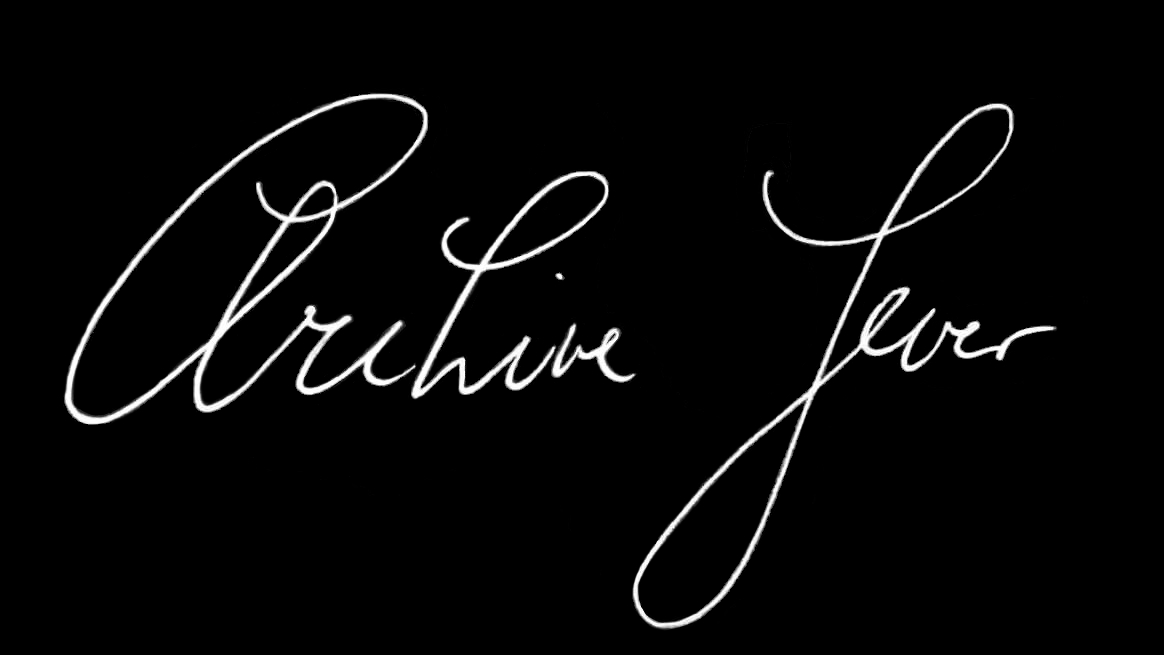 Archive Fever